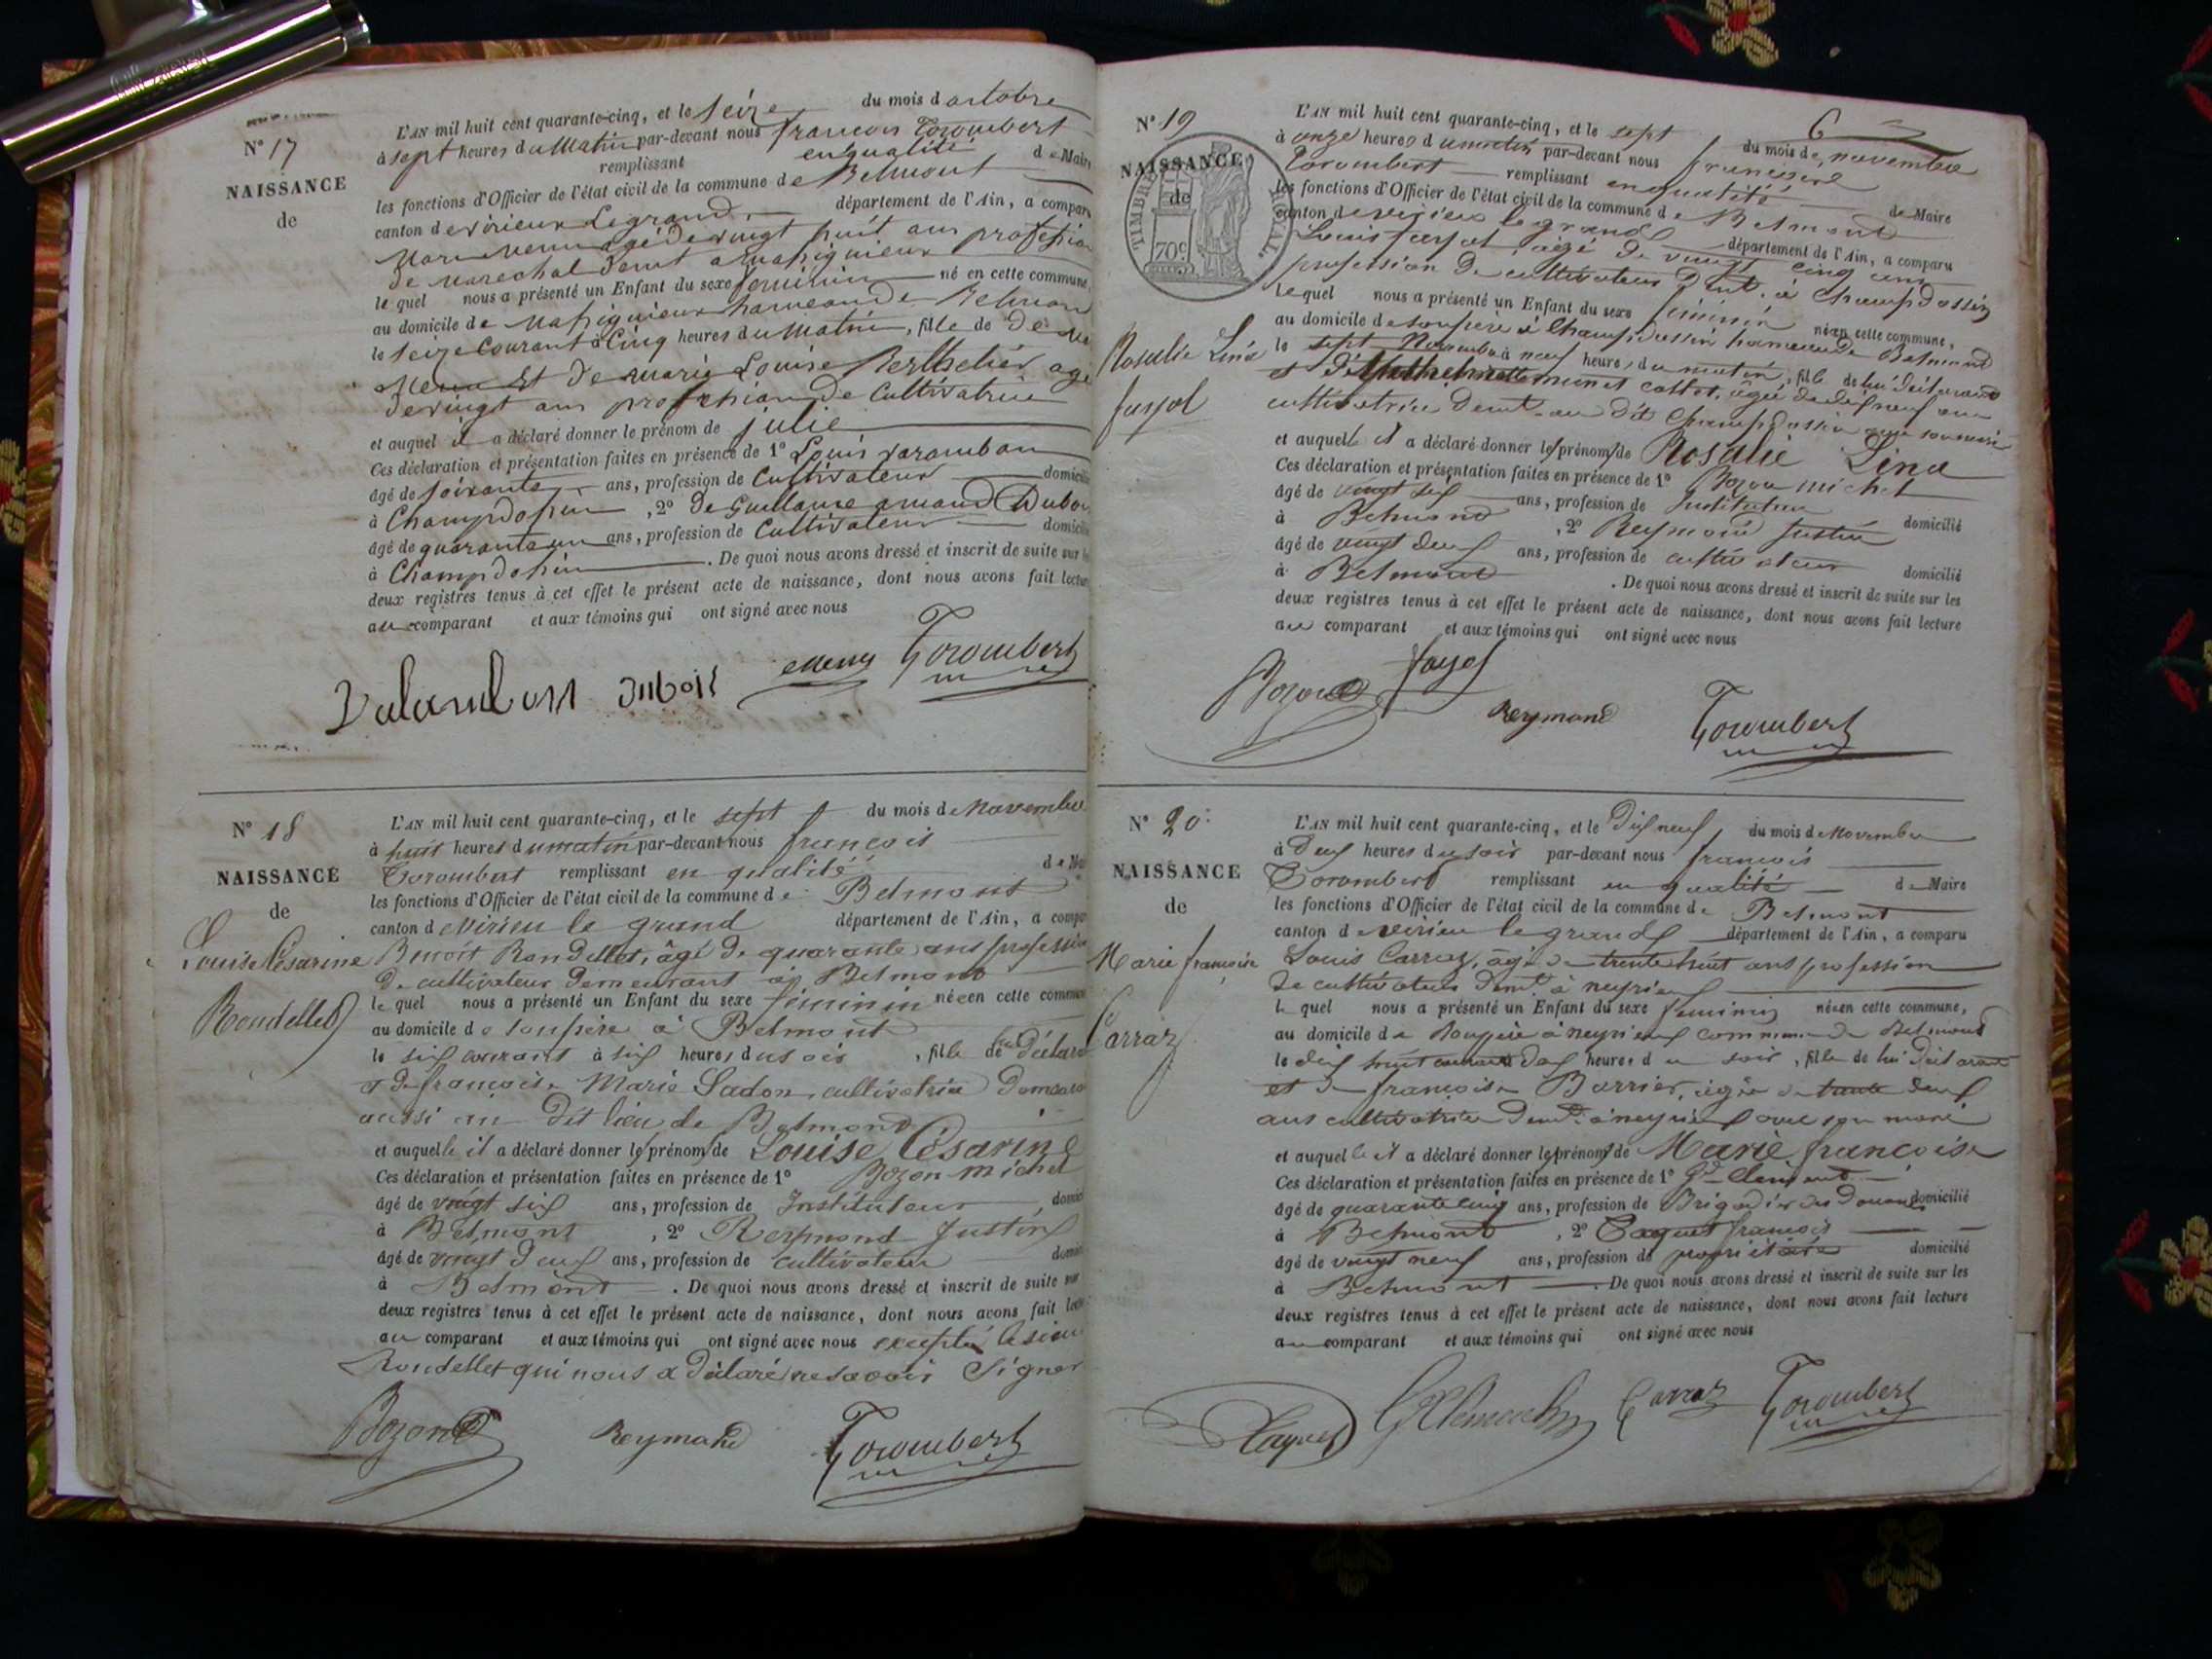 N° 17
NAISSANCE
de
L'AN mil huit cent quarante-cinq, et le seize du mois d'octobre
à sept heures du Matin par-devant nous françois Torombert
remplissant en qualité de Maire
les fonctions d'Officier de l'état civil de la commune de Belmont
canton de virieux Legrand département de l'Ain, a comparu
agé de vingt huit ans profession
de marechal demt a
le quel nous a présenté un Enfant du sexe feminin né en cette commune,
au domicile de hameau de Belmont
le seize Courant à Cinq heures du Matin, fille de
et de marie Louise Berthelier agé
de vingt ans profession de Cultivatrice
et auquel il a déclaré donner le prénom de julie
Ces déclaration et présentation faites en présence de 1° Louis varambon
âgé de soixante ans, profession de Cultivateur domicilié
à Champdossin, 2° de Guillaume amand Dubois
âgé de quarante un ans, profession de Cultivateur domicilié
à Champdossin. De quoi nous avons dressé et inscrit de suite sur les
deux registres tenus à cet effet le présent acte de naissance, dont nous avons fait lecture
au comparant et aux témoins qui ont signé avec nous
Valambon Dubois Torombert
N° 18
NAISSANCE
de
Louise Césarine
Rondellet
L'AN mil huit cent quarante-cinq, et le sept du mois de Novembre
à huit heures du matin par-devant nous françois
Torombert remplissant en qualité de Maire
les fonctions d'Officier de l'état civil de la commune de Belmont
canton de Virieu le grand département de l'Ain, a comparu
Benoit Rondellet, âgé de quarante ans profession
de cultivateur demeurant à Belmont
le quel nous a présenté un Enfant du sexe féminin née en cette commune
au domicile de son père à Belmont
le six courant à six heures du soir, fille de déclarant
et de françoise Marie Ladon cultivatrice
aussi au dit lieu de Belmont
et auquelle il a déclaré donner le prénom de Louise Césarine
Ces déclaration et présentation faites en présence de 1° Bozon michel
âgé de vingt six ans, profession de Instituteur, domicilié
à Belmont, 2° Reymond Justin
âgé de vingt deux ans, profession de cultivateur domicilié
à Belmont. De quoi nous avons dressé et inscrit de suite sur
deux registres tenus à cet effet le présent acte de naissance, dont nous avons fait lecture
au comparant et aux témoins qui ont signé avec nous excepté le sieur
Rondellet qui nous a déclaré ne savoir signer
Bozon Reymond Torombert
6
N° 19
NAISSANCE
de
TIMBRE ROYAL
70c
Rosalie Lina
fayol
L'AN mil huit cent quarante-cinq, et le sept du mois de novembre
à onze heures du matin par-devant nous françois
Torombert remplissant en qualité de Maire
les fonctions d'Officier de l'état civil de la commune de Belmont
canton de virieu le grand département de l'Ain, a comparu
Louis fayol âgé de vingt cinq ans
profession de cultivateur demt. à Champdossin
lequel nous a présenté un Enfant du sexe féminin née en cette commune,
au domicile de son père à Champdossin hameau de Belmont
le sept Novembre à neuf heures du matin, fille de lui déclarant
et âgée de dix neuf ans
cultivatrice demt. au dit Champdossin avec son mari
et auquelle il a déclaré donner les prénoms de Rosalie Lina
Ces déclaration et présentation faites en présence de 1° Bozon michel
âgé de vingt six ans, profession de Instituteur domicilié
à Belmont, 2° Reymond Justin
âgé de vingt deux ans, profession de cultivateur domicilié
à Belmont. De quoi nous avons dressé et inscrit de suite sur les
deux registres tenus à cet effet le présent acte de naissance, dont nous avons fait lecture
au comparant et aux témoins qui ont signé avec nous
Bozon fayol Reymond Torombert
N° 20
NAISSANCE
de
Marie françoise
Carraz
L'AN mil huit cent quarante-cinq, et le dix neuf du mois de Novembre
à deux heures du soir par-devant nous françois
Torombert remplissant en qualité de Maire
les fonctions d'Officier de l'état civil de la commune de Belmont
canton de virieu le grand département de l'Ain, a comparu
Louis Carraz, âgé de trente huit ans profession
de cultivateur demt. à neyrieux
le quel nous a présenté un Enfant du sexe feminin née en cette commune,
au domicile de son père à neyrieux commune de Belmont
le dix huit courant à dix heures du soir, fille de lui déclarant
et de françoise Barrier, âgée de trente deux
ans cultivatrice demt. à neyrieux avec son mari
et auquelle il a déclaré donner les prénoms de Marie françoise
Ces déclaration et présentation faites en présence de 1° Gd Clément
âgé de quarante cinq ans, profession de Brigadier des Douanes domicilié
à Belmont, 2° Taquet françois
âgé de vingt neuf ans, profession de propriétaire domicilié
à Belmont. De quoi nous avons dressé et inscrit de suite sur les
deux registres tenus à cet effet le présent acte de naissance, dont nous avons fait lecture
au comparant et aux témoins qui ont signé avec nous
Carraz Torombert